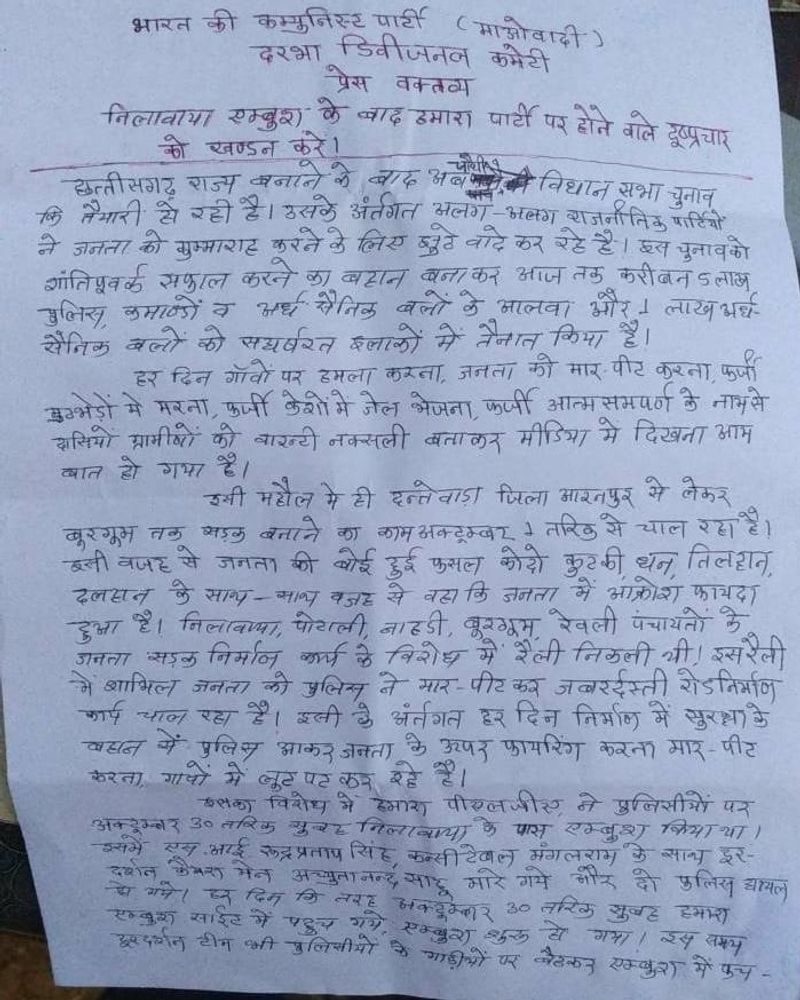 भारत की कम्युनिस्ट पार्टी (माओवादी)
दरभा डिवीजनल कमेटी
प्रेस वक्तव्य
निलावाया एम्बुश के बाद हमारा पार्टी पर होने वाले दूष्प्रचार
को खण्डन करें।
छत्तीसगढ़ राज्य बनाने के बाद अब चौथी विधान सभा चुनाव
कि तैयारी हो रही है। उसके अंर्तगत अलग-अलग राजनीतिक पार्टियों
ने जनता को गुम्माराह करने के लिए झुटे वादे कर रहे है। इस चुनाव को
शांतिपूवर्क सफाल करने का बहान बनाकर आज तक करीबन 5 लाख
पुलिस, कमाण्डों व अर्ध सैनिक बलों के आलवा और 1 लाख अर्ध-
सैनिक बलों को संघर्षरत इलाकों में तैनात किया है।
हर दिन गाँवों पर हमला करना, जनता को मार-पीट करना, फर्जी
मुठभेड़ों मे मरना, फर्जी केशो में जेल भेजना, फर्जी आत्म समपर्ण के नाम से
दासियों ग्रामीणों को वारन्टी नक्सली बताकर मीडिया मे दिखना आम
बात हो गया है।
इसी महौल मे ही दन्तेवाड़ा जिला आरनपुर से लेकर
बूरगूम तक सड़क बनाने का काम अक्टूम्बर 1 तारिक से चाल रहा है।
इसी वजह से जनता की बोई हुई फसल कोदो कुटकी, धन, तिलहान,
दलहान के साथ-साथ वजह से वहा कि जनता में आक्रोश फायदा
हुआ है। निलावाया, पोटाली, नाहडी, बूरगूम, रेवली पंचायतों के
जनता सड़क निर्माण कार्य के विरोध में रैली निकली थी। इस रैली
में शामिल जनता को पुलिस ने मार-पीट कर जबरर्दस्ती रोड निर्माण
कार्य चाल रहा है। इसी के अंर्तगत हर दिन निर्माण में सुरक्षा के
बहान में पुलिस आकर जनता के ऊपर फायरिंग करना मार-पीट
करना, गावों मे लूट पट कर रहे है।
इसका विरोध में हमारा पीएलजीए ने पुलिसीयों पर
अक्टूम्बर 30 तारिक सुबह निलावाया के पास एम्बुश किया था।
इसमें एस.आई रूद्रप्रताप सिंह, कन्सीटेबल मंगलराम के साथ दूर-
दर्शन कैमरा मेन अच्युतानन्द साहू मारे गये और दो पुलिस घायल
हो गये। हर दिन कि तरह अक्टूम्बर 30 तारिक सुबह हमारा
एम्बुश साईट में पहुच गये, एम्बुश शुरू हो गया। इस समय
दूरदर्शन टीम भी पुलिसीयों के गाड़ीयों पर बैठकर एम्बुश में फंच-